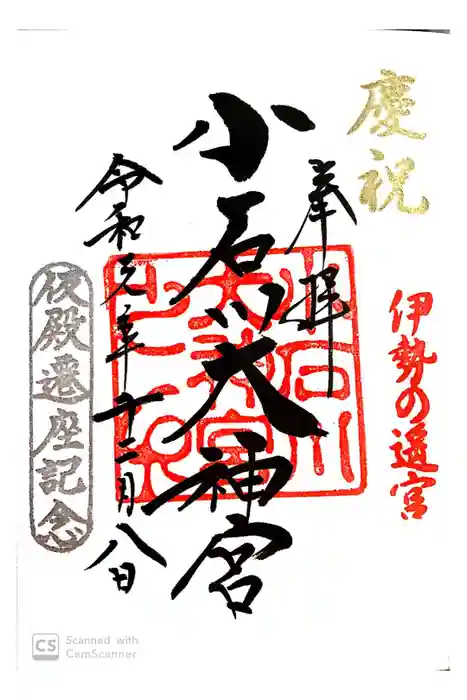 慶祝
伊勢の遥宮
奉拝
小石川大神宮
令和元年十二月八日
仮殿遷座記念
CS Scanned with
CamScanner